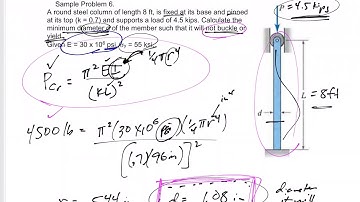 Sample Problem 6.
A round steel column of length 8 ft, is fixed at its base and pinned
at its top (k = 0.7) and supports a load of 4.5 kips. Calculate the
minimum diameter d of the member such that it will not buckle or
yield.
Given E = 30 x 10⁶ psi, σy = 55 ksi.
P = 4.5 kips
Pcr = π² E I / (KL)²
¼πr⁴
in⁴
4500 lb = π²(30x10⁶ psi)(¼πr⁴) / [(.7)(96in)]²
d
L = 8ft
r = .544 in
d = 1.08 in
diameter
it will